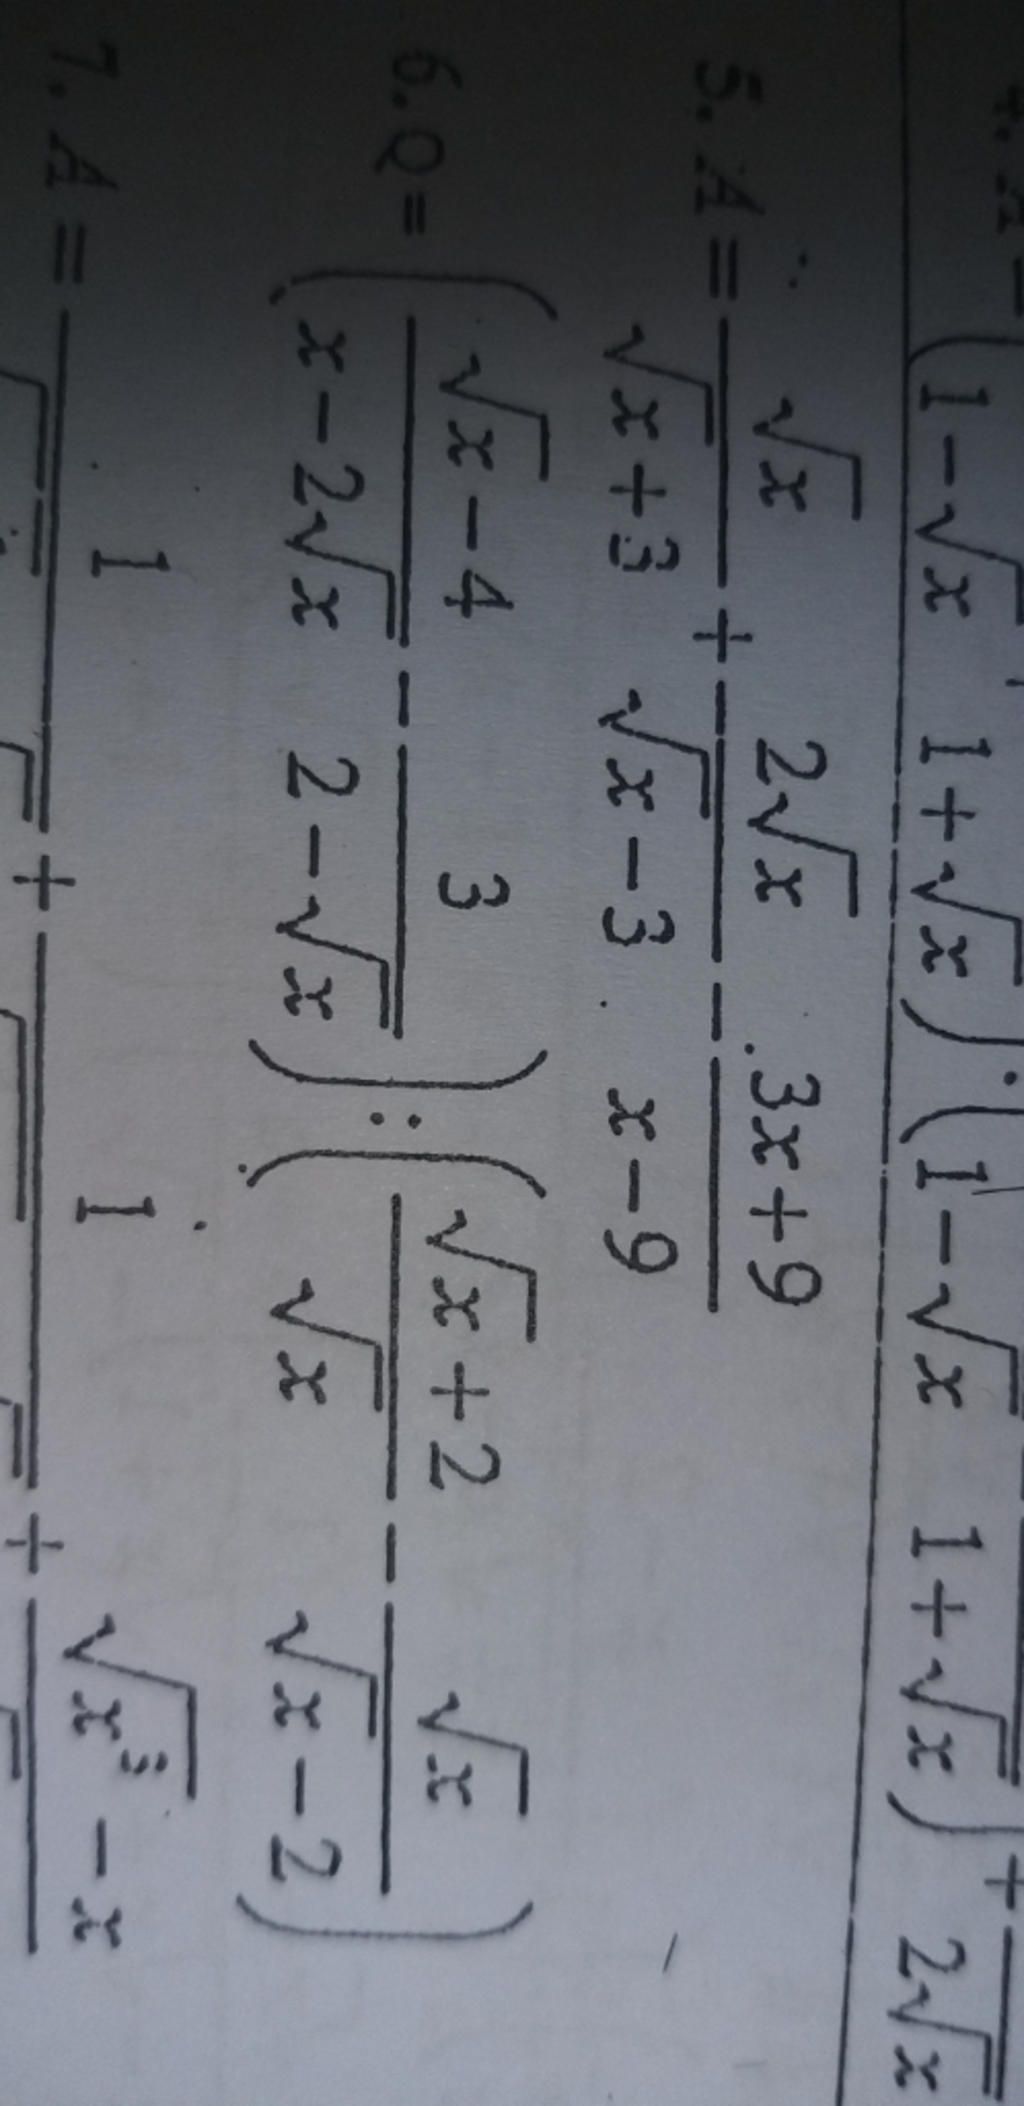 (1-√x 1+√x) : (1-√x 1+√x) + 2√x
5. A = √x/(√x+3) + 2√x/(√x-3) - (3x+9)/(x-9)
6. Q = ((√x-4)/(x-2√x) - 3/(2-√x)) : ((√x+2)/√x - √x/(√x-2))
7. A = 1 + 1 + √x³ - x